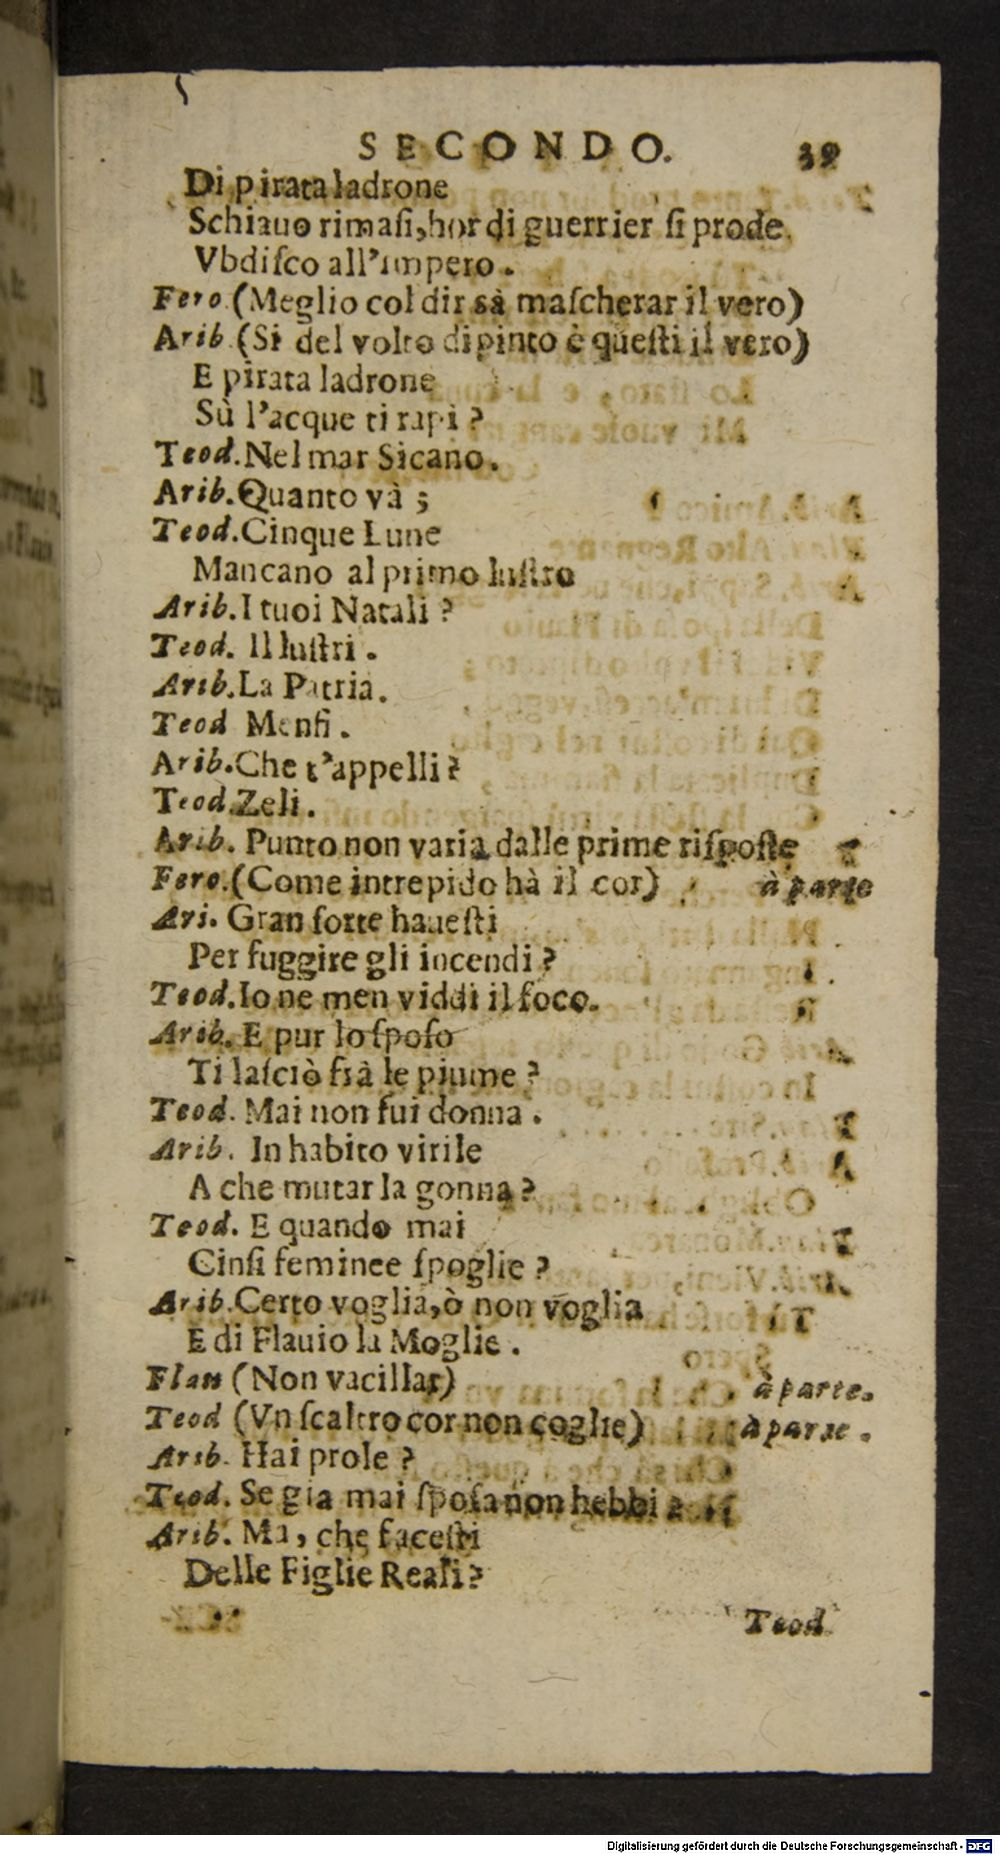 SECONDO. 39
Di pirata ladrone
Schiauo rimasi, hor di guerrier sì prode
Vbdisco all'impero.
Fero (Meglio col dir sà mascherar il vero)
Arib (Si del volto dipinto è questi il vero)
E pirata ladrone
Sù l'acque ti rapì?
Teod. Nel mar Sicano.
Arib. Quanto và;
Teod. Cinque Lune
Mancano al primo lustro
Arib. I tuoi Natali?
Teod. Illustri.
Arib. La Patria.
Teod Menfi.
Arib. Che t'appelli?
Teod. Zeli.
Arib. Punto non varia dalle prime risposte
Fero. (Come intrepido hà il cor) à parte
Ari. Gran sorte hauesti
Per fuggire gli incendi?
Teod. Io ne men viddi il foco.
Arib. E pur lo sposo
Ti lasciò frà le piume?
Teod. Mai non fui donna.
Arib. In habito virile
A che mutar la gonna?
Teod. E quando mai
Cinsi feminee spoglie?
Arib. Certo voglia, ò non voglia
E di Flauio la Moglie.
Flau (Non vacillar) à parte.
Teod (Vn scaltro cor non coglie) à parte.
Arib. Hai prole?
Teod. Se gia mai sposa non hebbi
Arib. Ma, che facesti
Delle Figlie Reali?
Teod
Digitalisierung gefördert durch die Deutsche Forschungsgemeinschaft - DFG